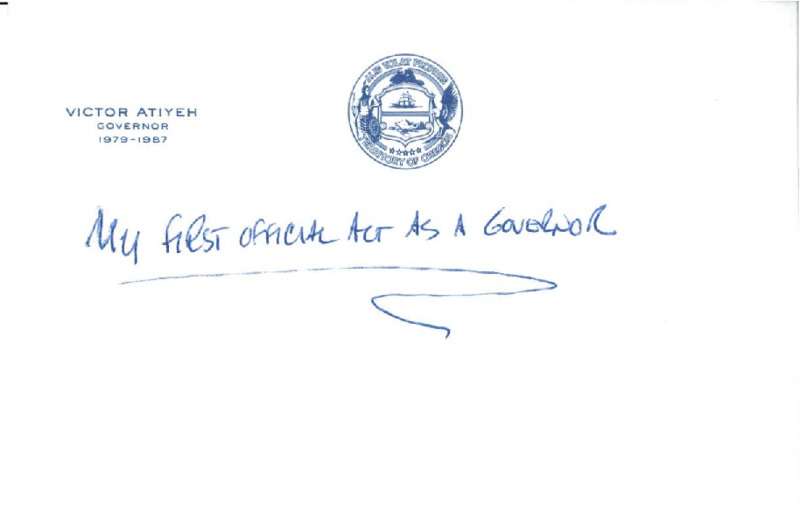 ALIS VOLAT PROPRIIS
TERRITORY OF OREGON
VICTOR ATIYEH
GOVERNOR
1979-1987
My FIRST OFFICIAL ACT AS A GOVERNOR